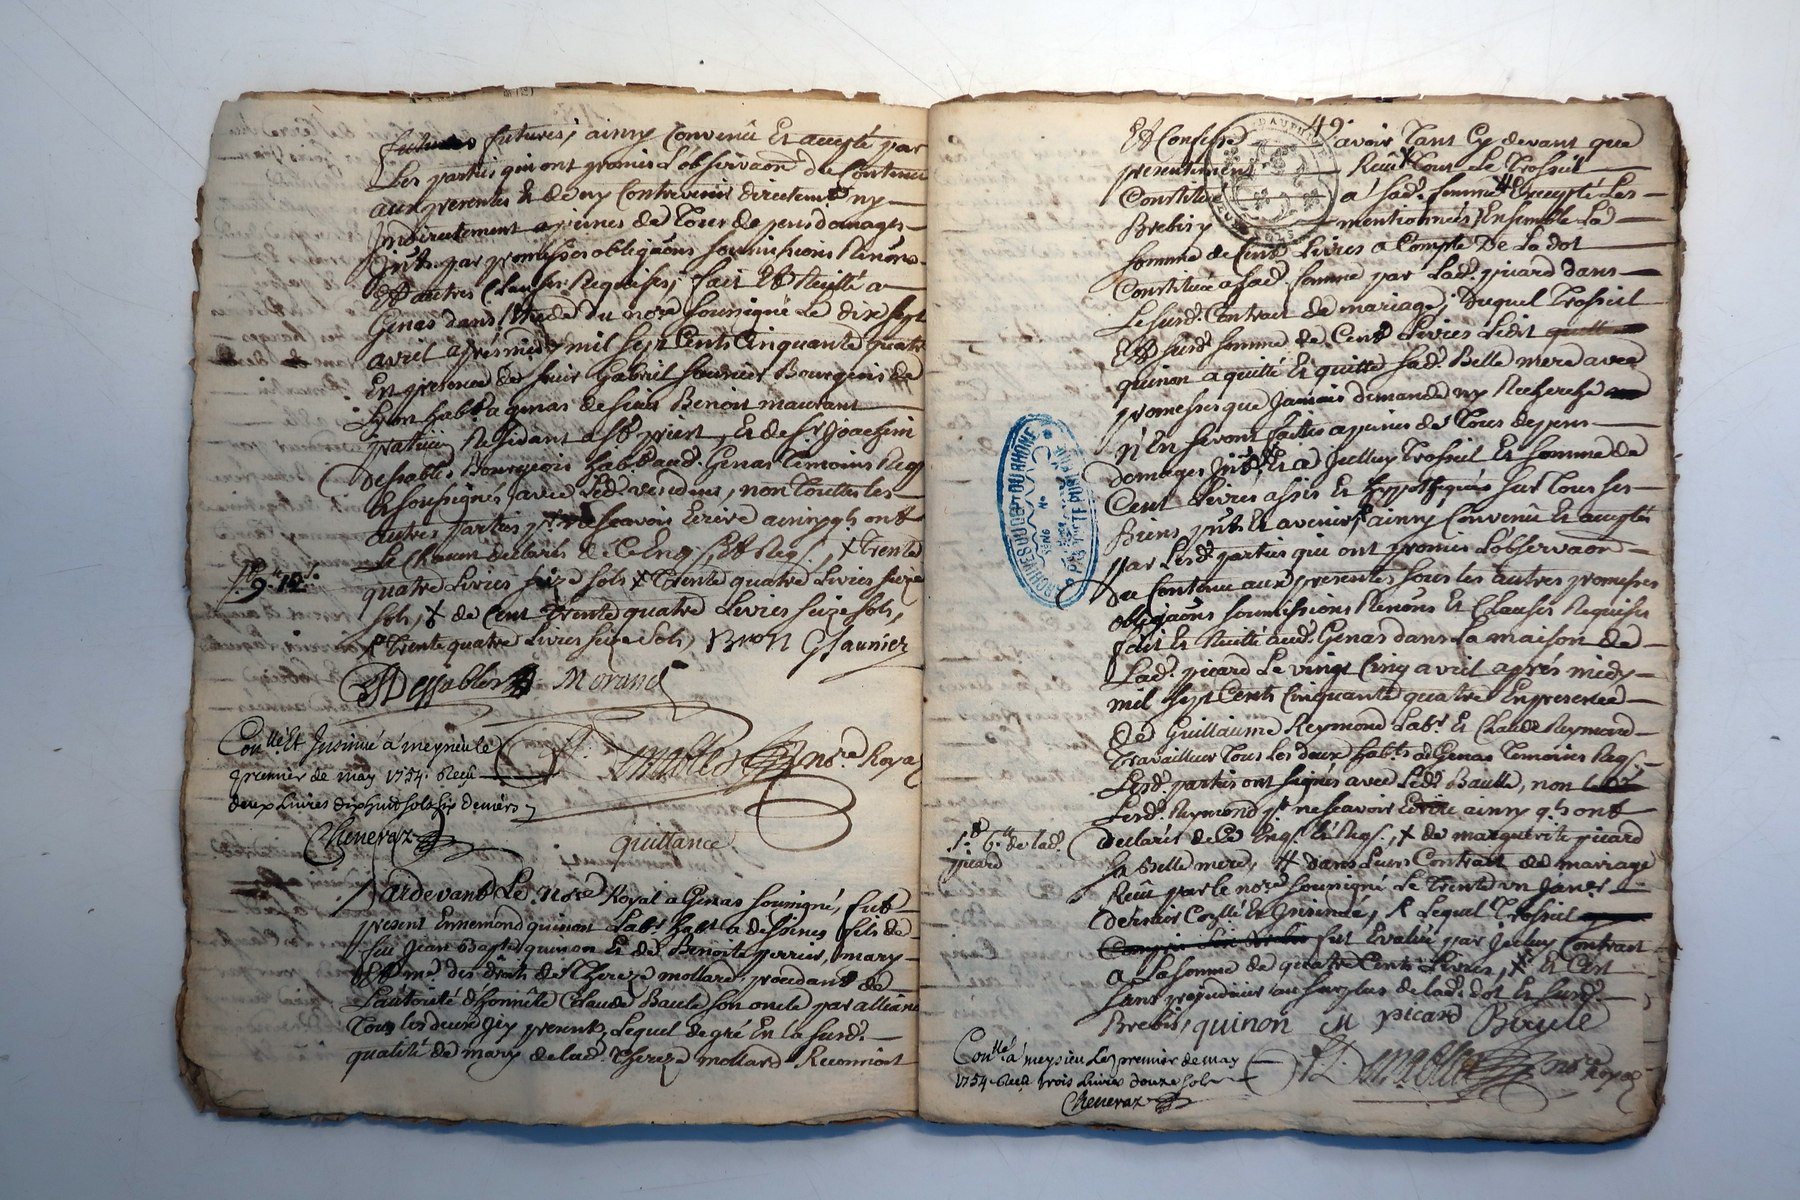 futures, ainsy Convenû Et accepté par
Les parties qui ont promis L'observaon de Contenu
aux presentes Et de ny Contrevenir directemt ny
Indirectement a peines de Tous depens domages
Ints par promesses obligaons soumissions Renons
Et autres Clauses Requises, fait Et Recitté a
Genas dans L'etude du nore soussigné Le dix sept
avril aprés midy mil sept Cents Cinquante quatre
En presence de sieur Gabriel Bourgeois de
Lyon habt a genas de sieur Benoit
praticien Residant a St priest, Et de Sr Joachim
Dessables Bourgeois habt aud. Genas Temoins Reqs
Et soussignés avec Led. vendeur, non Touttes les
autres parties pr ne sçavoir Ecrire ainsy qls ont
Le Chacun declaré de Ce Enqs Et Reqs, x Trente
quatre Livres seize sols x Trente quatre Livres seize
sols, x de Cent Trente quatre Livres Seize sols,
Trente quatre Livres seize Sols, GSaunier
Dessables Morand
nore Royal
Conllé Et Insinué a meyzieu le
premier de may 1754. Reçu
deux Livres dixhuit sols six deniers
Cheneraz
quittance
Pardevant Le nore Royal a Genas soussigné, fut
present Ennemond quinon Labr habt a dessines fils de
feu Jean Bapte quinon Et de Benoite perrier, mary
Et me des droits de Thereze mollard, procedant de
L'autorité d'honnête Claude Baule son oncle par alliance
Tous les deux Icy presents, Lequel de gré En la susd.
qualité de mary de lad. Thereze mollard Reconnoit
49
Et Confesse avoir Tant Cy devant que
presentement Reçu x Tout Le Trossel
Constitué a sad. femme # Excepté Les
Brebis y mentionnées, Ensemble La
somme de Cent Livres a Compte De La dot
Constituée a sad. femme par Lad. picard dans
Le susd. Contrat de mariage; Duquel Trossel
Et susd. somme de Cent Livres Ledit
quinon a quité Et quitte sad. Belle mere avec
promesses que Jamais demande ny Recherche
n'En seront faites a peines de Tous depens
domages Ints Et a Icelluy Trossel Et somme de
Cent Livres assis Et hyppothequé sur Tous ses
Biens pnts Et avenir, ainsy Convenû Et accepté
par Lesd. parties qui ont promis L'observaon
du Contenu aux presentes sous les autres promesses
obligaons soumissions Renons Et Clauses Requises
fait Et Recité aud. Genas dans La maison de
Lad. picard Le vingt Cinq avril aprés midy
mil sept Cents Cinquante quatre En presence
de Guillaume Reymond Labr Et Claude Reymond
Travailleur Tous Les deux habts a Genas Temoins Reqs.
Lesd. parties ont signés avec Led. Baulle, non
Lesd. Reymond pr ne sçavoir Ecrire ainsy qls ont
declarés de Ce Enqs Et Reqs, x de marguerite picard
sa Belle mere, # dans Leur Contrat de mariage
Reçu par le nore soussigné Le Trente un Janer
dernier Conllé Et Insinué, Lequel Trossel
fut Evalué par Icelluy Contrat
a La somme de quatre Cents Livres, x Et C'est
sans prejudice au surplus de lad. dot Et susd.
Brebis, quinon M picard Baule
de lad.
picard
Conllé a meyzieu Le premier de may
1754. Reçu trois Livres douze sols
Cheneraz
nore Royal
ARCHIVES DU DEPt DU RHONE